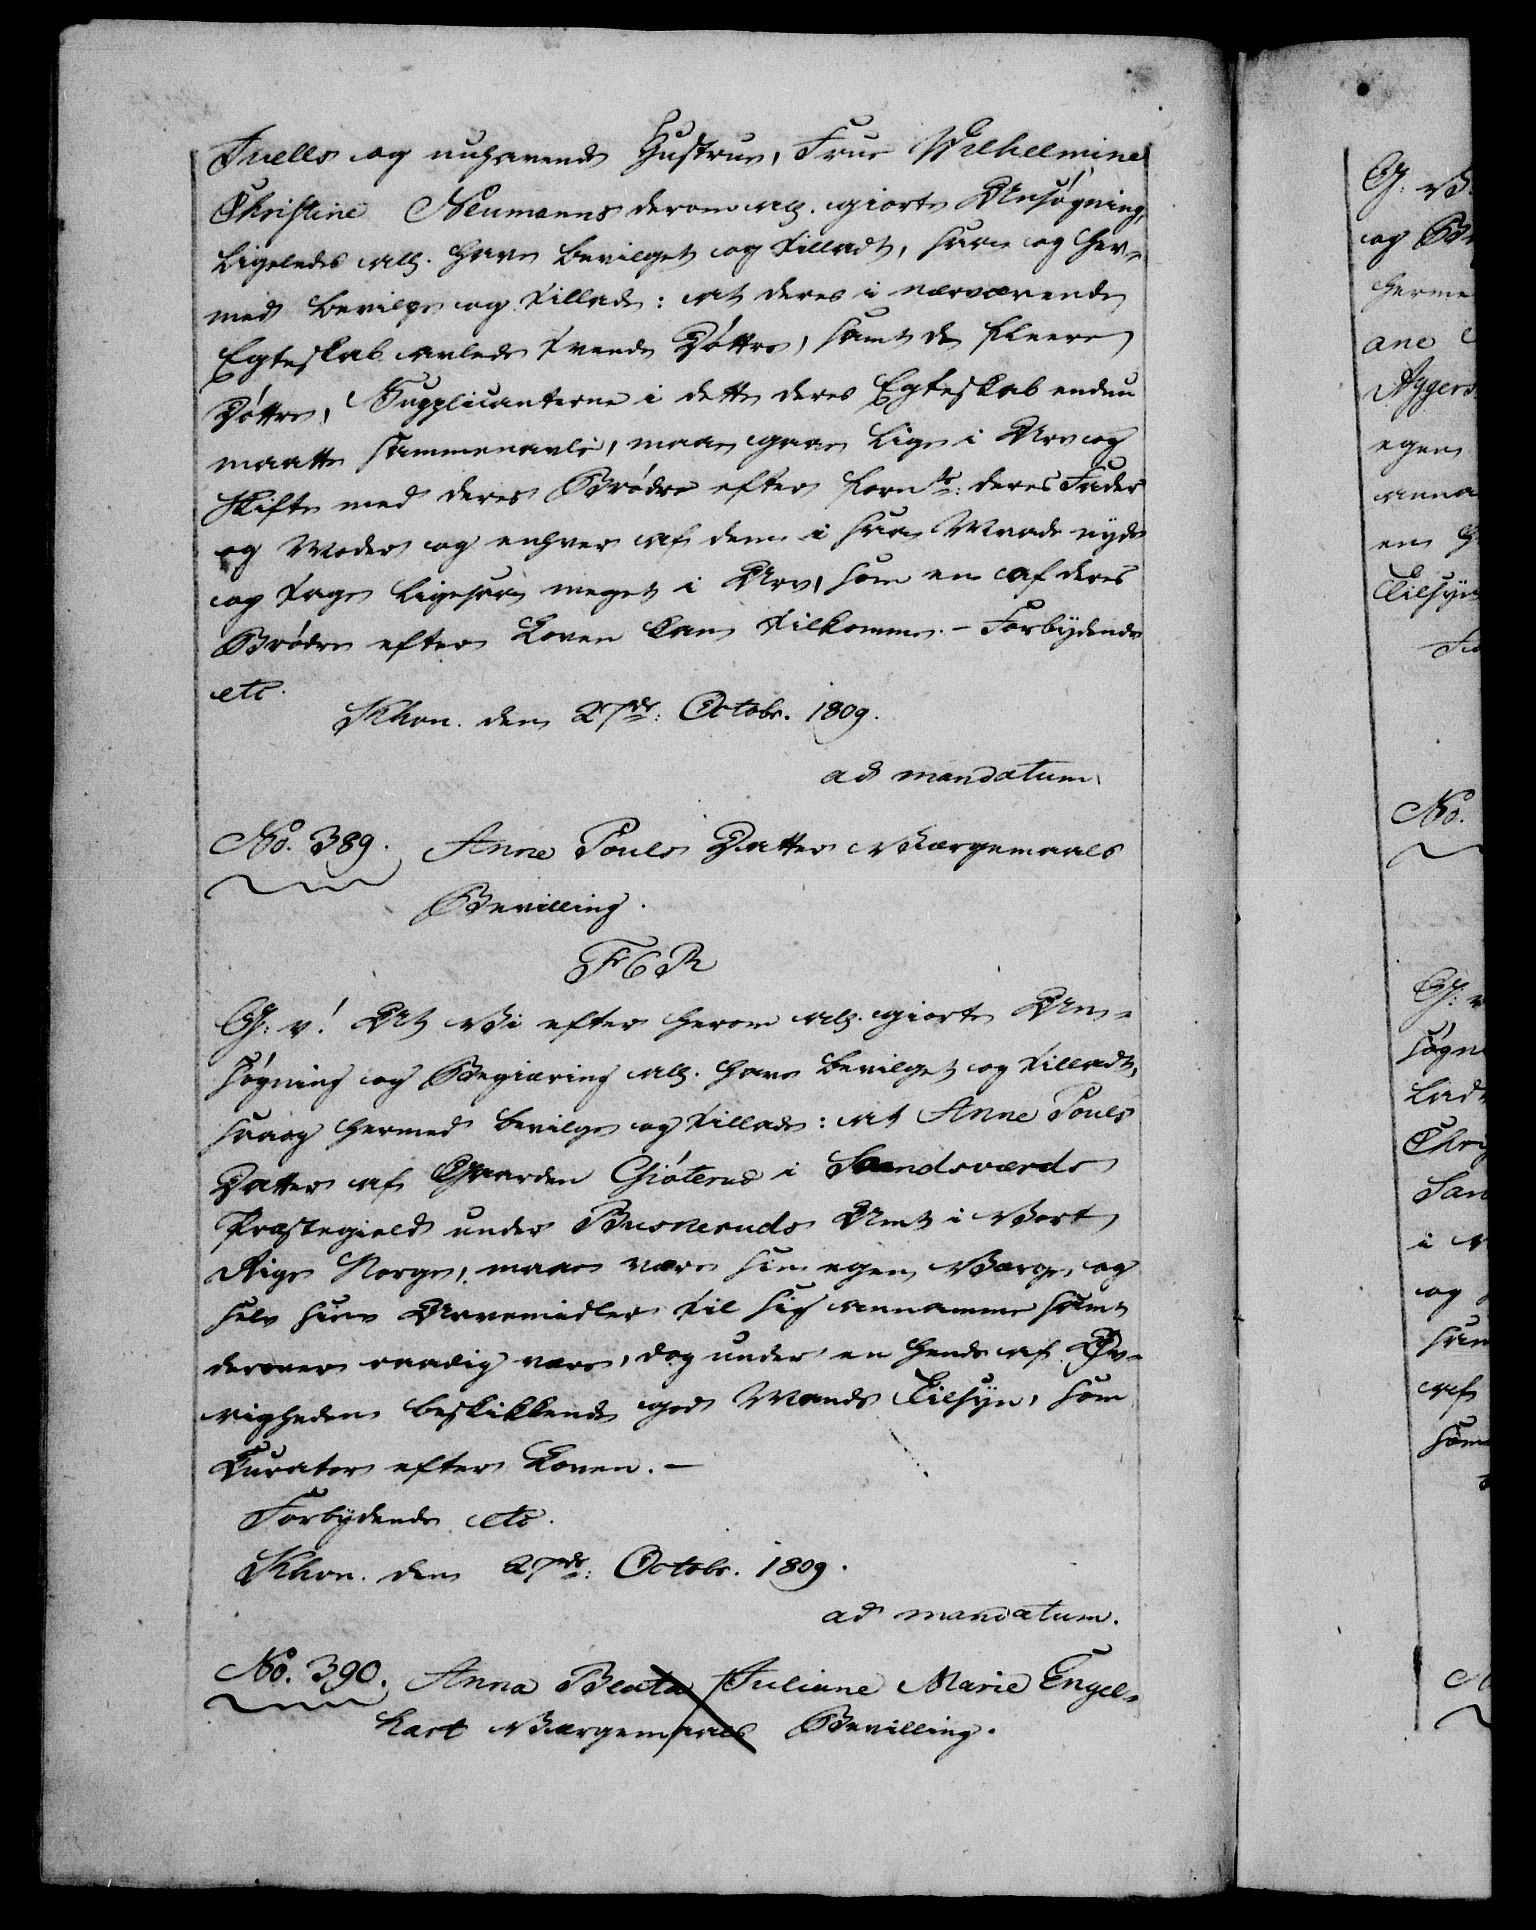 Juells og nuhavende Hustrue, Frue Wilhelmine
Christine Neumanns derom all. giorte Ansøgning,
ligeledes all. have bevilget og tilladt, saa og her-
med bevilge og tillade: at deres i nærværende
Egteskab avlede tvende Døttre, samt de fleere
Døttre, Supplicanterne i dette deres Egteskab endnu
maatte sammenavle, maae gaae lige i Arv og
Skifte med deres Brødre efter bem.te deres Fader
og Moder og enhver af dem i saa Maade nyde
og tage ligesaa meget i Arv, som en af deres
Brødre efter Loven kan tilkomme. - Forbydende
etc.
Khvn. den 27de: Octobr. 1809.
ad mandatum.
No. 389. Anne Pouls Datter Værgemaals
Bevilling.
F6R
G: v! At Vi efter herom all. giorte An-
søgning og Begiæring all. have bevilget og tilladt,
saa og hermed bevilge og tillade: at Anne Pouls
Datter af Gaarden Giøterud i Sandsværds
Præstegield under Buskeruds Amt i Vort
Rige Norge, maae være sin egen Værge og
selv sine Arvemidler til sig annamme samt
derover raadig være, dog under en hende af Øv-
righeden beskikkende god Mands Tilsyn, som
Curator efter Loven. -
Forbydende etc.
Khvn. den 27de: Octobr. 1809.
ad mandatum.
No. 390. Anna Beata Juliane Marie Engel-
hart Værgemaals Bevilling.
G: v.
og B
herme
ane
Aggers
egen
anna
en
Tilsyn
No.
G: v
søgn
lad
San
i
og
sam
af
som